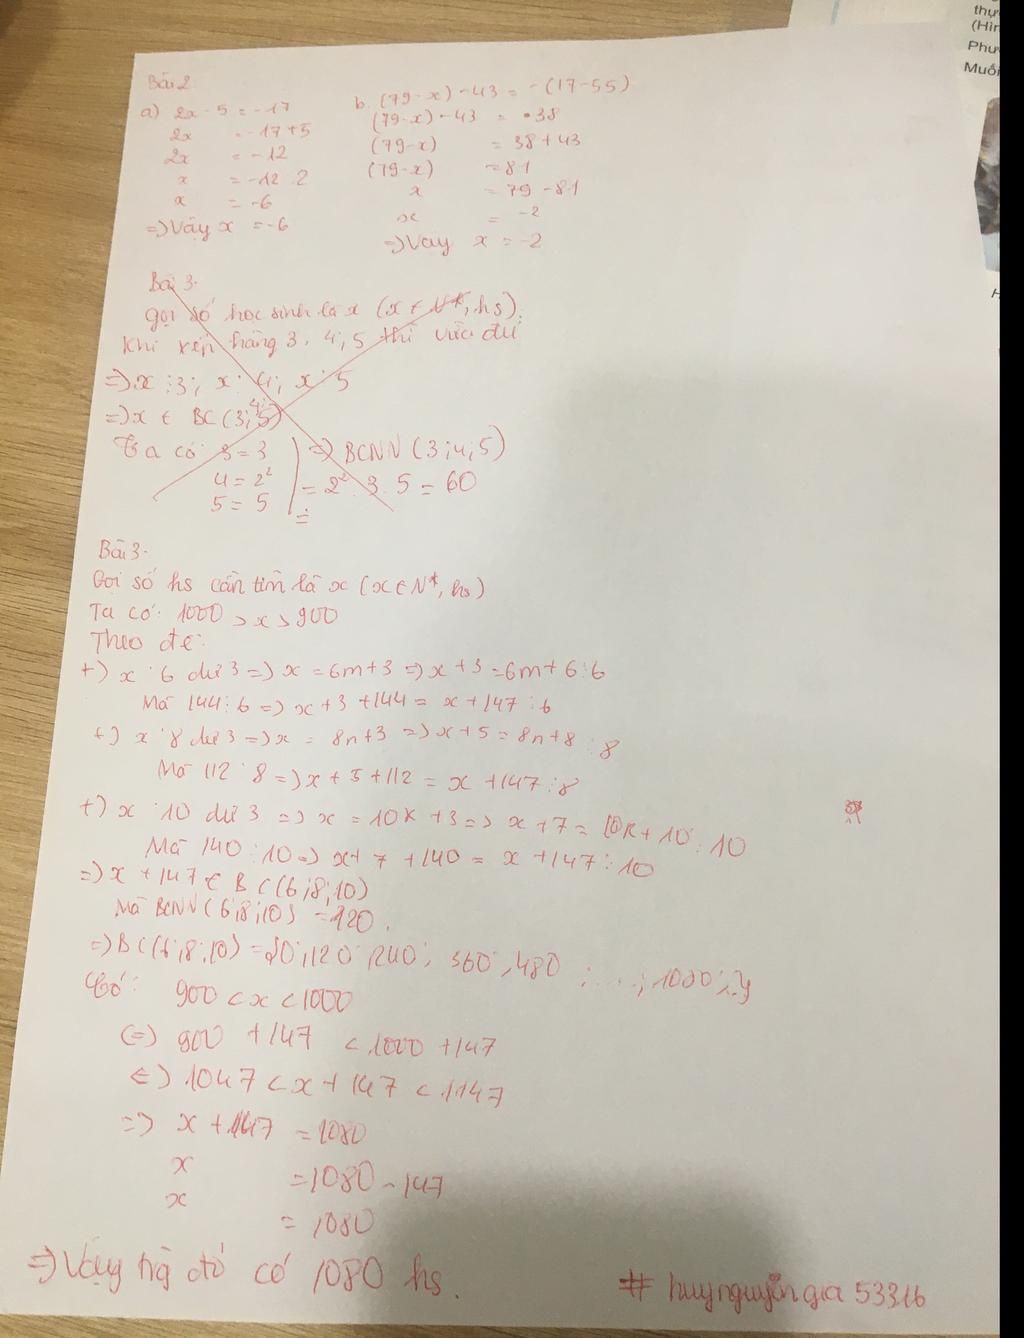 Bài 2
a) 2x - 5 = -17
2x = -17+5
2x = -12
x = -12 : 2
x = -6
=> Vậy x = -6
b. (79-x) - 43 = -(17-55)
(79-x) - 43 = 38
(79-x) = 38 + 43
(79-x) = 81
x = 79 - 81
x = -2
=> Vậy x = -2
Bài 3.
Gọi số học sinh là x (x ∈ N*, hs).
Khi xếp hàng 3, 4, 5 thì vừa đủ
=> x ⋮ 3; x ⋮ 4; x ⋮ 5
=> x ∈ BC (3;4;5)
Ta có: 3 = 3
4 = 2²
5 = 5
=> BCNN (3;4;5)
= 2² . 3 . 5 = 60
Bài 3.
Gọi số hs cần tìm là x (x ∈ N*, hs)
Ta có: 1000 > x > 900
Theo đề:
+) x : 6 dư 3 => x = 6m+3 => x + 3 = 6m + 6 ⋮ 6
Mà 144 ⋮ 6 => x + 3 + 144 = x + 147 ⋮ 6
+) x : 8 dư 3 => x = 8n+3 => x + 5 = 8n + 8 ⋮ 8
Mà 112 ⋮ 8 => x + 5 + 112 = x + 147 ⋮ 8
+) x : 10 dư 3 => x = 10k + 3 => x + 7 = 10k + 10 ⋮ 10
Mà 140 ⋮ 10 => x + 7 + 140 = x + 147 ⋮ 10
=> x + 147 ∈ BC (6;8;10)
Mà BCNN (6;8;10) = 120.
=> BC (6;8;10) = {0; 120; 240; 360; 480; ....; 1080; ..}
Có: 900 < x < 1000
<=> 900 + 147 < 1000 + 147
<=> 1047 < x + 147 < 1147
=> x + 147 = 1080
x = 1080 - 147
x = 1080
=> Vậy đó có 1080 hs.
# huynguyễngia 53316
thực
(Hìn
Phư
Muối
H